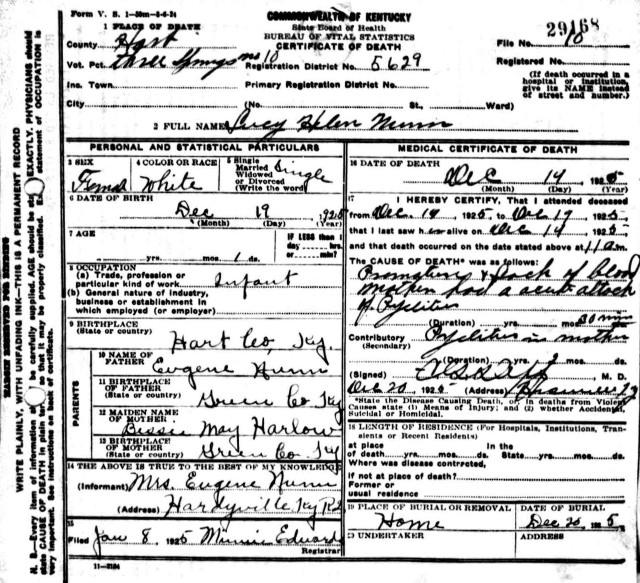 Form V. S. 1-50m-5-6-24
COMMONWEALTH OF KENTUCKY
State Board of Health
BUREAU OF VITAL STATISTICS
CERTIFICATE OF DEATH
29168
File No. 10
Registered No.
(If death occurred in a hospital or institution, give its NAME instead of street and number.)
1 PLACE OF DEATH
County Hart
Vot. Pct. Three Springs no 10
Registration District No. 5629
Inc. Town
Primary Registration District No.
City (No. St., Ward)
2 FULL NAME Lucy Helen Nunn
PERSONAL AND STATISTICAL PARTICULARS
3 SEX
Female
4 COLOR OR RACE
White
5 Single
Married
Widowed
or Divorced
(Write the word)
Single
6 DATE OF BIRTH
Dec 19 1925
(Month) (Day) (Year)
7 AGE
yrs. mos. 1 ds.
IF LESS than
1 day hrs.
or min?
8 OCCUPATION
(a) Trade, profession or
particular kind of work Infant
(b) General nature of industry,
business or establishment in
which employed (or employer)
9 BIRTHPLACE
(State or country)
Hart Co, Ky.
PARENTS
10 NAME OF
FATHER
Eugene Nunn
11 BIRTHPLACE
OF FATHER
(State or country)
Green Co Ky
12 MAIDEN NAME
OF MOTHER
Bessie May Harlow
13 BIRTHPLACE
OF MOTHER
(State or country)
Green Co. Ky
14 THE ABOVE IS TRUE TO THE BEST OF MY KNOWLEDGE
(Informant) Mrs. Eugene Nunn
(Address) Hardyville Ky R2
15
Filed Jan 8 1925 Minnie Edwards
Registrar
11-3184
MEDICAL CERTIFICATE OF DEATH
16 DATE OF DEATH
Dec 14 1925
(Month) (Day) (Year)
17 I HEREBY CERTIFY, That I attended deceased
from Dec. 19 1925 to Dec 19 1925
that I last saw h alive on Dec 14 1925
and that death occurred on the date stated above at 11 am.
The CAUSE OF DEATH* was as follows:
Premature & lack of blood
Mother had a acute attack
of Pyelitis
(Duration) yrs. mos. 30 min
Contributory Pyelitis in mother
(Secondary)
(Duration) yrs. 2 mos. ds.
(Signed) M. D.
Dec 20 1925 (Address)
*State the Disease Causing Death, or, in deaths from Violent
Causes state (1) Means of Injury; and (2) whether Accidental,
Suicidal or Homicidal.
18 LENGTH OF RESIDENCE (For Hospitals, Institutions, Transients or Recent Residents)
At place In the
of death yrs. mos. ds. State yrs. mos. ds.
Where was disease contracted,
if not at place of death?
Former or
usual residence
19 PLACE OF BURIAL OR REMOVAL
Home
DATE OF BURIAL
Dec 20, 1925
20 UNDERTAKER
ADDRESS
MARGIN RESERVED FOR BINDING
WRITE PLAINLY, WITH UNFADING INK—THIS IS A PERMANENT RECORD
N. B.—Every item of information should be carefully supplied. AGE should be stated EXACTLY. PHYSICIANS should
state CAUSE OF DEATH in plain terms, so that it may be properly classified. Exact statement of OCCUPATION is
very important. See instructions on back of certificate.